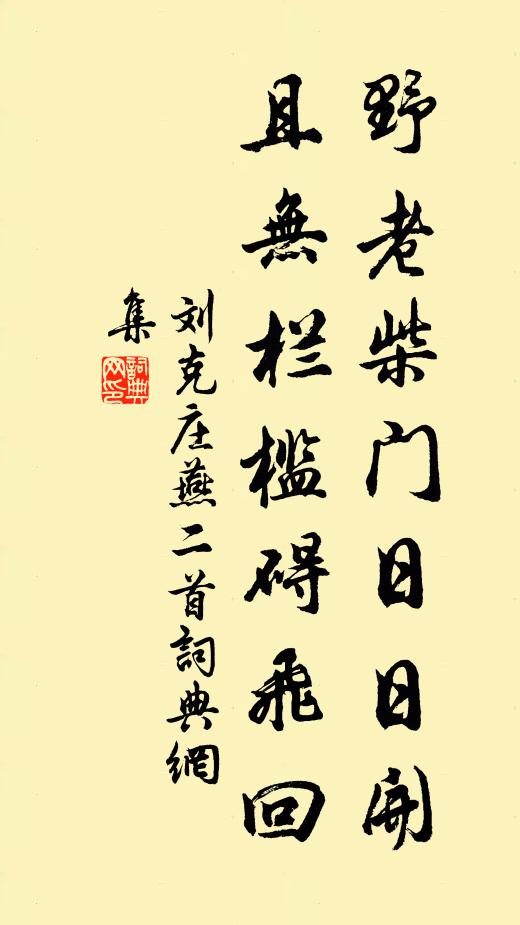 野老柴门日日開
且無栏槛碍飛回
刘克庄燕二首詞典網
集
詞典網印